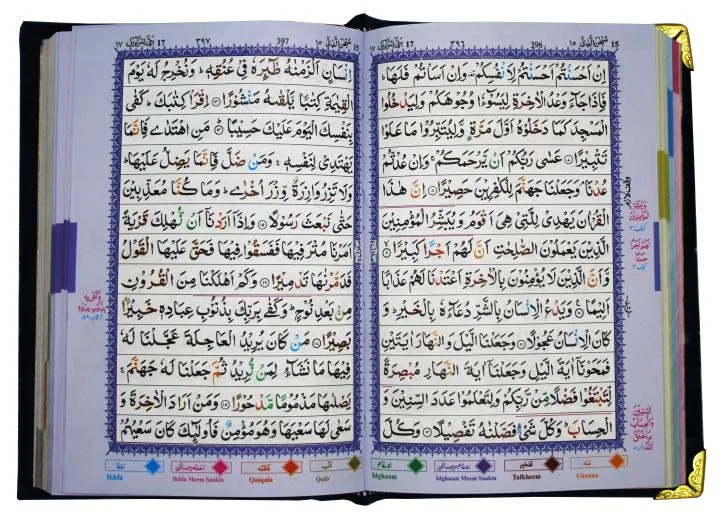 15 سُبْحٰنَ الَّذِیْٓ ١٥ 396 ٣٩٦ بَنِیْٓ اِسْرَآءِیْل 17 ١٧
اِنْ اَحْسَنْتُمْ اَحْسَنْتُمْ لِاَنْفُسِكُمْ وَاِنْ اَسَاْتُمْ فَلَهَا ؕ
فَاِذَا جَآءَ وَعْدُ الْاٰخِرَةِ لِیَسُوْٓءٗا وُجُوْهَكُمْ وَلِیَدْخُلُوا
الْمَسْجِدَ كَمَا دَخَلُوْهُ اَوَّلَ مَرَّةٍ وَّلِیُتَبِّرُوْا مَا عَلَوْا
تَتْبِیْرًا ۝ عَسٰی رَبُّكُمْ اَنْ یَّرْحَمَكُمْ ۚ وَاِنْ عُدْتُّمْ
عُدْنَا ۘ وَجَعَلْنَا جَهَنَّمَ لِلْكٰفِرِیْنَ حَصِیْرًا ۝ اِنَّ هٰذَا
الْقُرْاٰنَ یَهْدِیْ لِلَّتِیْ هِیَ اَقْوَمُ وَیُبَشِّرُ الْمُؤْمِنِیْنَ
الَّذِیْنَ یَعْمَلُوْنَ الصّٰلِحٰتِ اَنَّ لَهُمْ اَجْرًا كَبِیْرًا ۝
وَّاَنَّ الَّذِیْنَ لَا یُؤْمِنُوْنَ بِالْاٰخِرَةِ اَعْتَدْنَا لَهُمْ عَذَابًا
اَلِیْمًا ۝ وَیَدْعُ الْاِنْسَانُ بِالشَّرِّ دُعَآءَهٗ بِالْخَیْرِ ؕ وَ
كَانَ الْاِنْسَانُ عَجُوْلًا ۝ وَجَعَلْنَا الَّیْلَ وَالنَّهَارَ اٰیَتَیْنِ
فَمَحَوْنَاۤ اٰیَةَ الَّیْلِ وَجَعَلْنَاۤ اٰیَةَ النَّهَارِ مُبْصِرَةً
لِّتَبْتَغُوْا فَضْلًا مِّنْ رَّبِّكُمْ وَلِتَعْلَمُوْا عَدَدَ السِّنِیْنَ وَ
الْحِسَابَ ؕ وَكُلَّ شَیْءٍ فَصَّلْنٰهُ تَفْصِیْلًا ۝ وَكُلَّ
15 سُبْحٰنَ الَّذِیْٓ ١٥ 397 ٣٩٧ بَنِیْٓ اِسْرَآءِیْل 17 ١٧
اِنْسَانٍ اَلْزَمْنٰهُ طٰٓئِرَهٗ فِیْ عُنُقِهٖ ؕ وَنُخْرِجُ لَهٗ یَوْمَ
الْقِیٰمَةِ كِتٰبًا یَّلْقٰىهُ مَنْشُوْرًا ۝ اِقْرَاْ كِتٰبَكَ ؕ كَفٰی
بِنَفْسِكَ الْیَوْمَ عَلَیْكَ حَسِیْبًا ۝ مَنِ اهْتَدٰی فَاِنَّمَا
یَهْتَدِیْ لِنَفْسِهٖ ۚ وَمَنْ ضَلَّ فَاِنَّمَا یَضِلُّ عَلَیْهَا ؕ
وَلَا تَزِرُ وَازِرَةٌ وِّزْرَ اُخْرٰی ؕ وَمَا كُنَّا مُعَذِّبِیْنَ
حَتّٰی نَبْعَثَ رَسُوْلًا ۝ وَاِذَاۤ اَرَدْنَاۤ اَنْ نُّهْلِكَ قَرْیَةً
اَمَرْنَا مُتْرَفِیْهَا فَفَسَقُوْا فِیْهَا فَحَقَّ عَلَیْهَا الْقَوْلُ
فَدَمَّرْنٰهَا تَدْمِیْرًا ۝ وَكَمْ اَهْلَكْنَا مِنَ الْقُرُوْنِ
مِنْۢ بَعْدِ نُوْحٍ ؕ وَكَفٰی بِرَبِّكَ بِذُنُوْبِ عِبَادِهٖ خَبِیْرًۢا
بَصِیْرًا ۝ مَنْ كَانَ یُرِیْدُ الْعَاجِلَةَ عَجَّلْنَا لَهٗ
فِیْهَا مَا نَشَآءُ لِمَنْ نُّرِیْدُ ثُمَّ جَعَلْنَا لَهٗ جَهَنَّمَ ۚ
یَصْلٰىهَا مَذْمُوْمًا مَّدْحُوْرًا ۝ وَمَنْ اَرَادَ الْاٰخِرَةَ وَ
سَعٰی لَهَا سَعْیَهَا وَهُوَ مُؤْمِنٌ فَاُولٰٓئِكَ كَانَ سَعْیُهُمْ
غنہ Ghunna
تفخیم Tafkheem
ادغام میم ساکن Idghaam Meem Saakin
ادغام Idghaam
قلب Qalb
قلقلہ Qalqala
اخفا میم ساکن Ikhfa Meem Saakin
اخفا Ikhfa